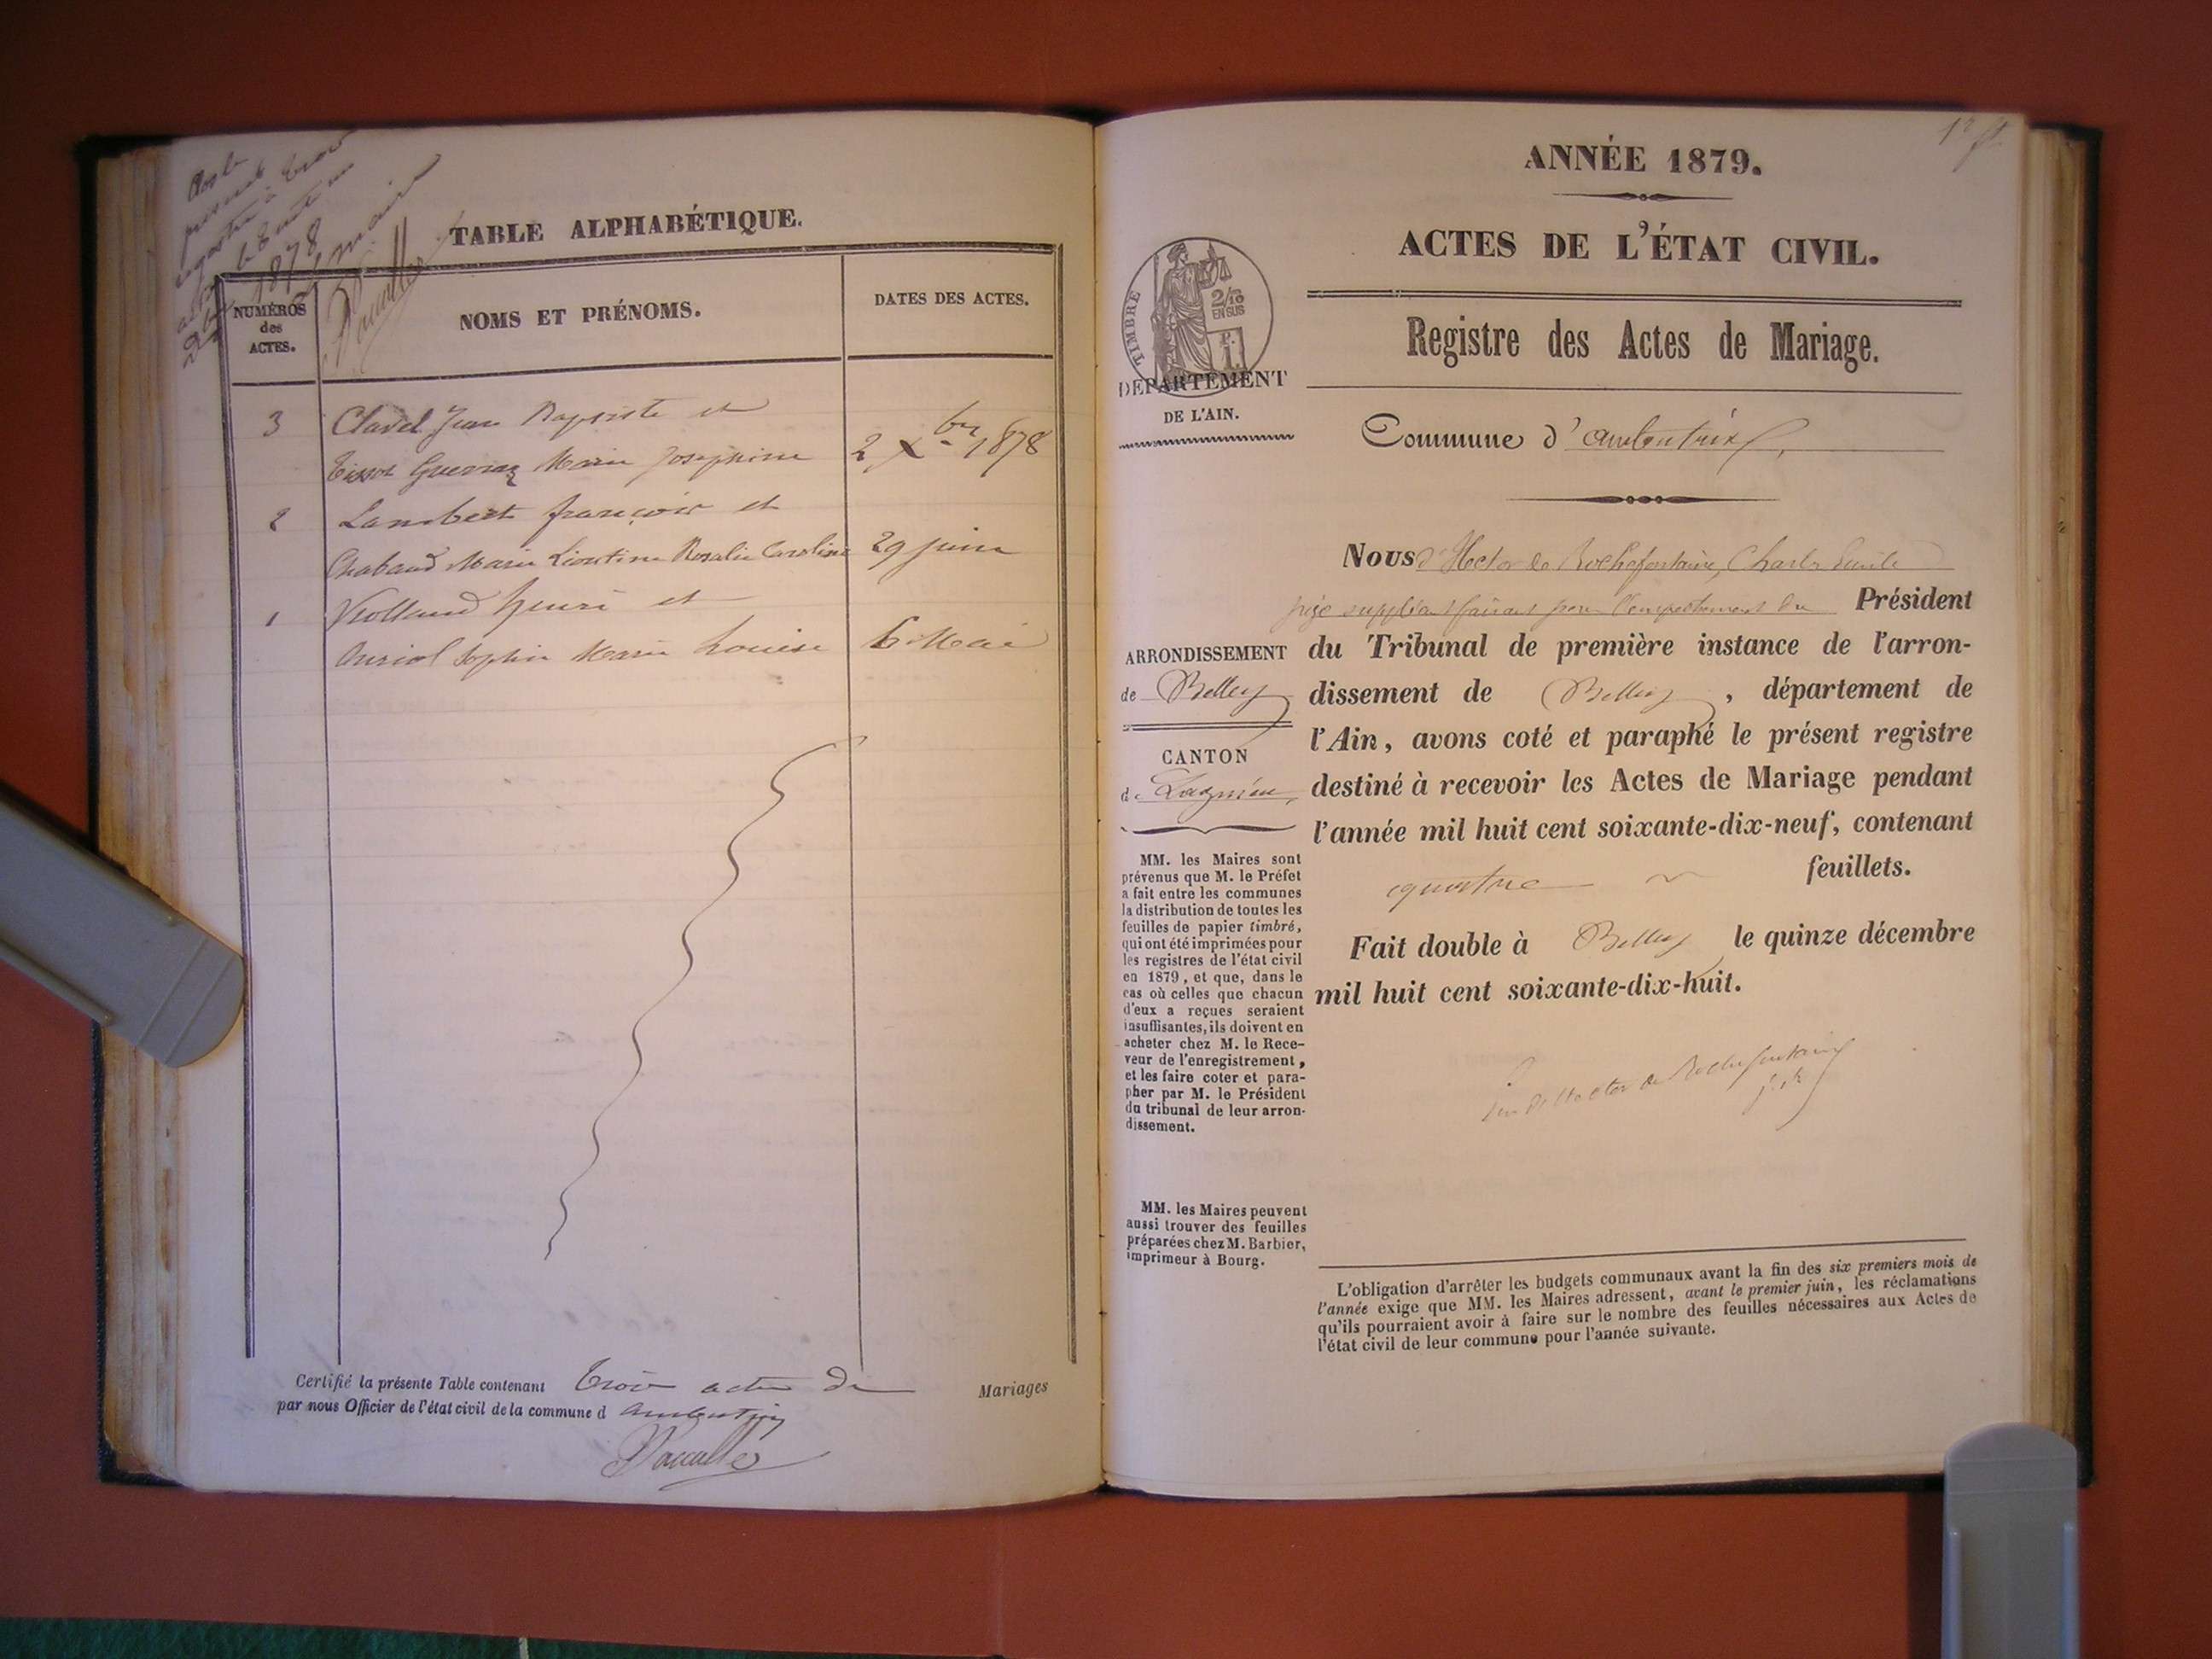 Clos le
présent
registre à trois
actes le trente un
Xbre 1878
Le maire
TABLE ALPHABÉTIQUE.
NUMÉROS
des
ACTES.
NOMS ET PRÉNOMS.
DATES DES ACTES.
3 Clavel Jean Baptiste et
Tissot Guerraz Marie Josephine 2 Xbre 1878
2 Lambert françois et
Chabaud Marie Léontine Rosalie Caroline 29 juin
1 Violland henri et
Auriol Sophie Marie Louise 6 Mai
Certifié la présente Table contenant trois actes de Mariages
par nous Officier de l'état civil de la commune d ambutrix
1er ft
ANNÉE 1879.
ACTES DE L'ÉTAT CIVIL.
TIMBRE
2/10
EN SUS
F.
1.
Registre des Actes de Mariage.
DÉPARTEMENT
DE L'AIN.
Commune d'ambutrix
Nous d'Hector de Rochefontaine, Charles Emile
juge suppléant faisant pour l'empêchement du Président
du Tribunal de première instance de l'arron-
dissement de Belley, département de
l'Ain, avons coté et paraphé le présent registre
destiné à recevoir les Actes de Mariage pendant
l'année mil huit cent soixante-dix-neuf, contenant
quatre feuillets.
Fait double à Belley le quinze décembre
mil huit cent soixante-dix-huit.
d'Hector de Rochefontaine
ARRONDISSEMENT
de Belley
CANTON
de Lagnieu,
MM. les Maires sont
prévenus que M. le Préfet
a fait entre les communes
la distribution de toutes les
feuilles de papier timbré,
qui ont été imprimées pour
les registres de l'état civil
en 1879, et que, dans le
cas où celles que chacun
d'eux a reçues seraient
insuffisantes, ils doivent en
acheter chez M. le Rece-
veur de l'enregistrement,
et les faire coter et para-
pher par M. le Président
du tribunal de leur arron-
dissement.
MM. les Maires peuvent
aussi trouver des feuilles
préparées chez M. Barbier,
imprimeur à Bourg.
L'obligation d'arrêter les budgets communaux avant la fin des six premiers mois de
l'année exige que MM. les Maires adressent, avant le premier juin, les réclamations
qu'ils pourraient avoir à faire sur le nombre des feuilles nécessaires aux Actes de
l'état civil de leur commune pour l'année suivante.